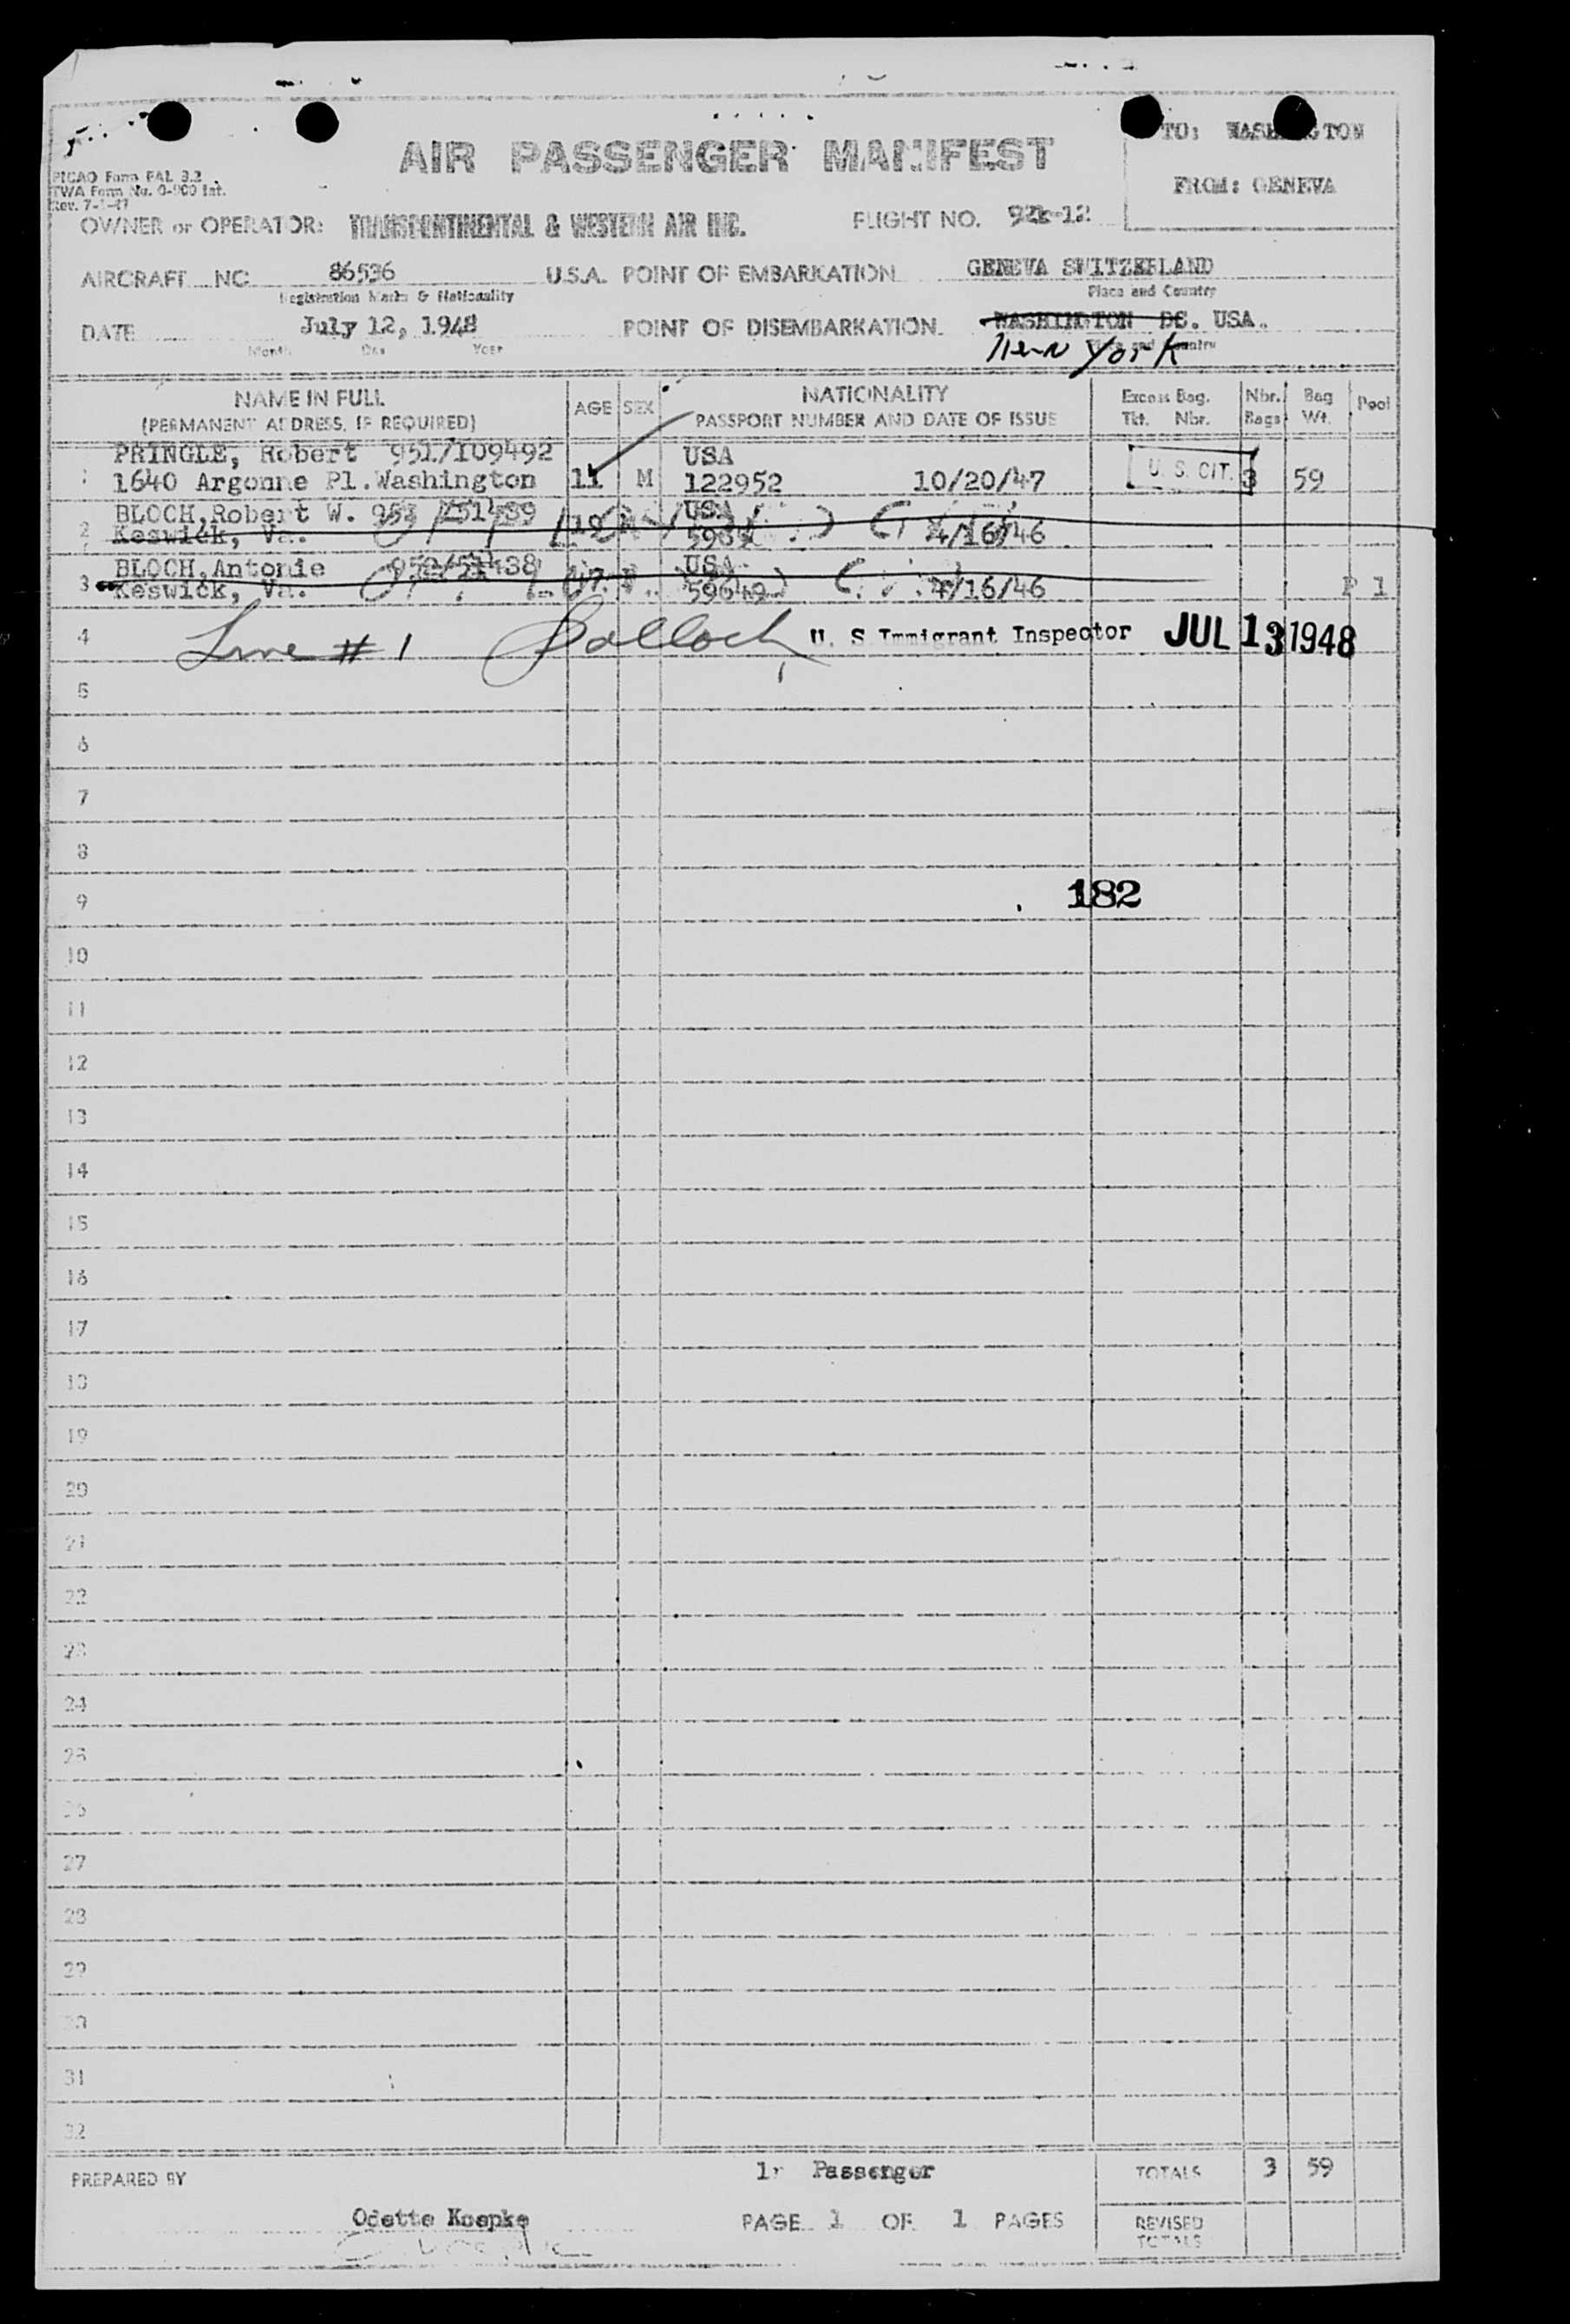 TO: WASHINGTON
AIR PASSENGER MANIFEST
PICAO Form PAL 3.2
TWA Form No. 0-900 Int.
Rev. 7-1-47
FROM: GENEVA
OWNER or OPERATOR: TRANSCONTINENTAL & WESTERN AIR INC. FLIGHT NO.
AIRCRAFT NC 86536 U.S.A. POINT OF EMBARKATION GENEVA SWITZERLAND
Registration Marks & Nationality Place and Country
DATE July 12, 1948 POINT OF DISEMBARKATION WASHINGTON DC. USA.
Month Day Year Place and Country
New York
NAME IN FULL AGE SEX NATIONALITY Excess Bag. Nbr. Bag Pool
(PERMANENT ADDRESS, IF REQUIRED) PASSPORT NUMBER AND DATE OF ISSUE Tkt. Nbr. Bags Wt.
PRINGLE, Robert 951/109492 USA
1 1640 Argonne Pl.Washington 11 M 122952 10/20/47 U. S. CIT. 3 59
BLOCH,Robert W. USA
2 Keswick, Va. 4/16/46
BLOCH,Antonie USA
3 Keswick, Va. 47 F 59649 4/16/46 P 1
4 Line # 1 U. S Immigrant Inspector JUL 13 1948
5
6
7
8
9 182
10
11
12
13
14
15
16
17
18
19
20
21
22
23
24
25
26
27
28
29
30
31
32
PREPARED BY Passenger TOTALS 3 59
Odette Koepke PAGE 1 OF 1 PAGES REVISED
TOTALS